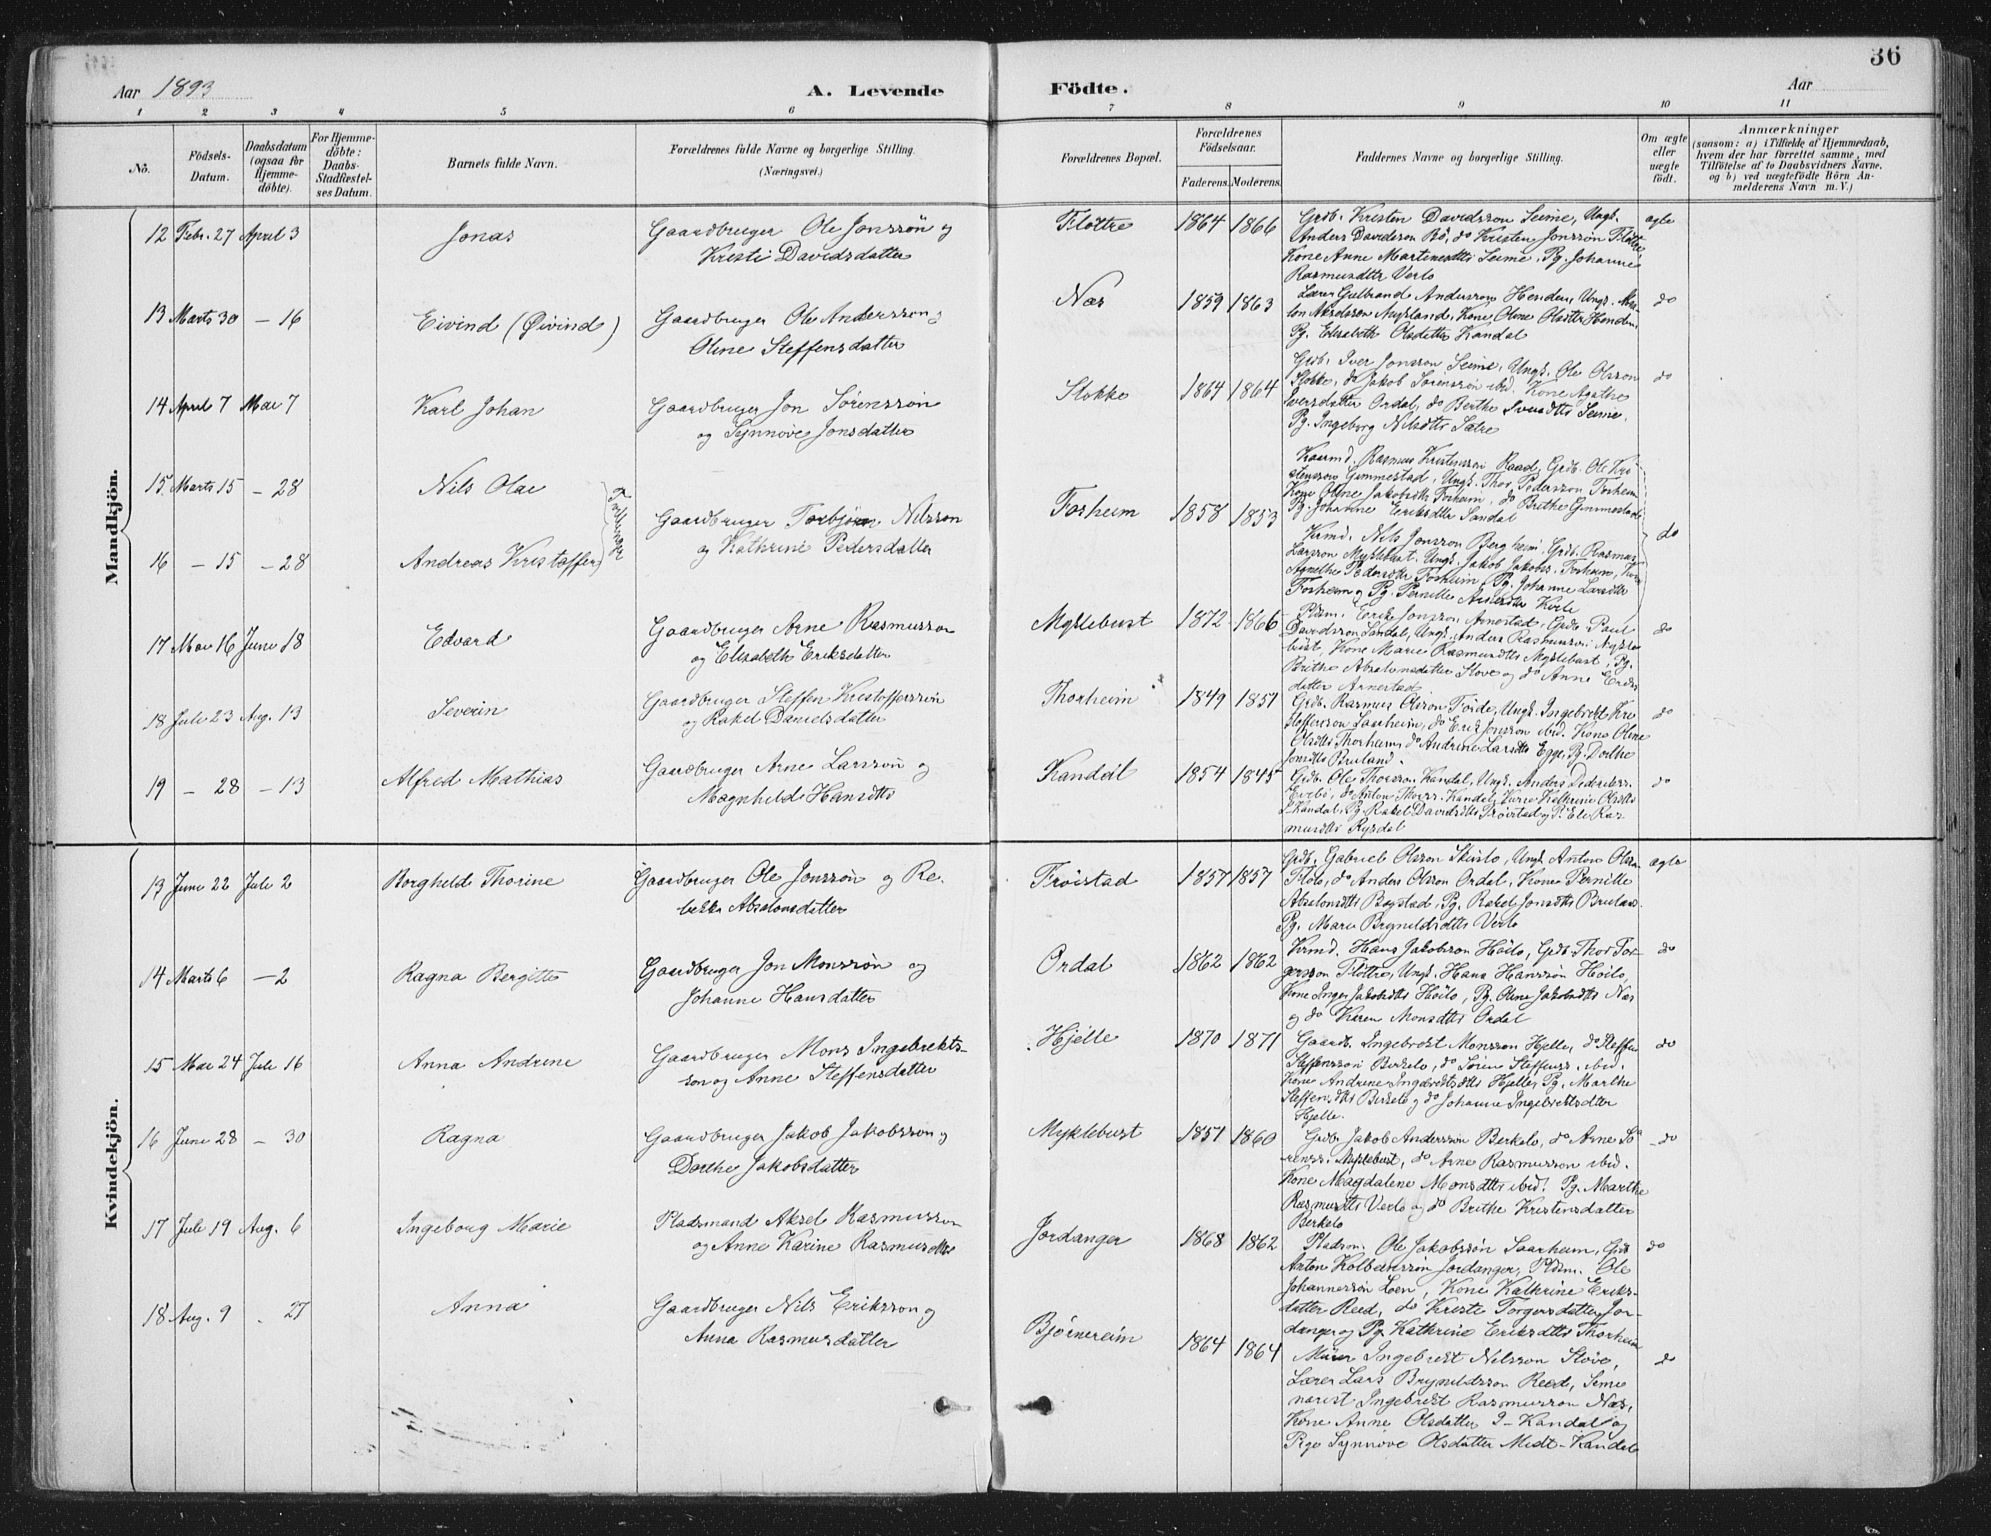 36
Aar 1893
A. Levende Födte.
Aar
1 2 3 4 5 6 7 8 9 10 11
No.
Födsels-Datum.
Daabsdatum (ogsaa for Hjemme-döbte).
For Hjemme-döbte: Daabs-Stadfestel-ses Datum.
Barnets fulde Navn.
Forældrenes fulde Navne og borgerlige Stilling. (Næringsvei.)
Forældrenes Bopæl.
Forældrenes Födselsaar.
Faderens. Moderens.
Faddernes Navne og borgerlige Stilling.
Om ægte eller uægte födt.
Anmærkninger
(saasom: a) i Tilfælde af Hjemmedaab, hvem der har forrettet samme, med Tilföielse af to Daabsvidners Navne. og b) ved uægtefödte Börn An-melderens Navn m. V.)
Mandkjön.
12 Febr. 27 April 3 Jonas Gaardbruger Ole Jonssön og
Kristi Davidsdatter
Flöttre 1864 1866 Grdb. Kristen Davidsson Seime, Ungk.
Anders Davidsson Bö, do Kristen Jonssön Flöttre
Kone Anne Martinusdtts Seime, Pg. Johanne
Rasmusdtter Verlo
ægte
13 Marts 30 — 16 Eivind (Øivind) Gaardbruger Ole Andersson og
Oline Steffensdatter
Næs 1859 1863 Lærer Gulbrand Andersson Henden, Ungk.
Nygland, Kone Oline Olsdtter Henden,
Pg. Elisabeth Olsdatter Kandal
do
14 April 7 Mai 7 Karl Johan Gaardbruger Jon Sörenssön
og Synnöve Jonsdatter
Stokke 1864 1864 Grdb. Iver Jonsson Seime, Ungk. Ole Olsson
Stokke, do Jakob Sörensson ibid. Kone Agathe
Iversdatter Ordal, do Berthe Seime.
Pg. Ingeborg Nilsdtts Sætre
do
15 Marts 15 — 28 Nils Olai
Tvillinger
Gaardbruger Torbjörn Nilsson
og Kathrine Pedersdatter
Forheim 1858 1853 Rasmus Kristensson Raad, Grdb. Ole Kri-
stensson Gimmestad, Ungk. Thor Pedersson Forheim
Kone Oline Jakobsdtts Forheim, do Brithe Gimmestad
Pg. Johanne Eriksdtter Sandal
do
16 — 15 — 28 Andreas Kristoffer
Krmd. Nils Jonsson Bergheim, Grdb. Rasmus
Larsson Myklebust, Ungk. Jakob Jakobs. Forheim,
Agnethe Pedersdtter Forheim, Pg. Johanne Larsdtts
Forheim og Pg. Pernille
17 Mai 16 Juni 18 Edvard Gaardbruger Arne Rasmusson
og Elisabeth Eriksdatter
Myklebust 1872 1866 Pldsm. Erik Jonsson Arnestad, Grdb. Paul
Davidsson Sandal, Ungk. Anders Rasmusson Mykle-
bust, Kone Marie Rasmusdtts Myklebust, Pg.
Brithe Absalonsdatter Stove og do Anne Eriks-
datter Arnestad
do
18 Juli 23 Aug. 13 Severin Gaardbruger Steffen Kristoffersson
og Rakel Danielsdatter
Thorheim 1849 1851 Grdb. Rasmus Olsson Förde, Ungk. Ingebrikt Kri-
stoffersson Saarheim, do Erik Jonsson ibid. Kone Oline
Olsdtts Thorheim, do Andrine Larsdtts Egge, Pg. Dorthe
Jonsdtts Bruland.
do
19 — 28 — 13 Alfred Mathias Gaardbruger Arne Larsson og
Magnhild Hansdtts
Kandal 1854 1845 Grdb. Ole Thorsson Kandal, Ungk. Anders Pedersss.
Evebö, do Anton Thorss. Kandal, Kone Kathrine Olsdtts
Kandal, Pg. Rakel Davidsdtts Tröistad og P. Eli Ras-
musdtts Rysdal
do
Kvindekjön.
13 Juni 22 Juli 2 Borghild Thorine Gaardbruger Ole Jonssön og Re-
bekka Absalonsdatter
Tröistad 1857 1857 Grdb. Gabriel Olsson Skinlo, Ungk. Anton Olsson
Flölo, do Anders Olsson Ordal, Kone Pernille
Absalonsdtts Bogstad, Pg. Rakel Jonsdtts Bruland.
Pg. Marie Brynildsdtts Verlo
ægte
14 Marts 6 — 2 Ragna Bergitte Gaardbruger Jon Monssön og
Johanne Hansdatter
Ordal 1862 1862 Krmd. Hans Jakobsson Höilo, Grdb. Thor Tor-
gersson Flöttre, Ungk. Hans Hanssön Höilo,
Kone Inger Jakobsdtts Höilo, Pg. Oline Jakobsdtts Næs
og do Karen Monsdtts Ordal
do
15 Mai 24 Juli 16 Anna Andrine Gaardbruger Mons Ingebrikts-
son og Anne Steffensdatter
Hjelle 1870 1871 Gaardb. Ingebrikt Monsson Hjelle, do Steffen
Steffensson Berkelo, do Sören Steffenss. ibid.
Kone Andrine Ingebriktsdtts Hjelle, Pg. Marthe
Steffensdtts Berkelo og do Johanne Ingebriktsdtter
Hjelle.
do
16 Juni 28 — 30 Ragna Gaardbruger Jakob Jakobsson og
Dorthe Jakobsdatter
Myklebust 1851 1860 Grdb. Jakob Anderssön Berkelo, do Arne Sö-
renss. Myklebust, do Arne Rasmusson ibid.
Kone Magdalene Monsdtts ibid. Pg. Marthe
Rasmusdtts Verlo og do Brithe Kristensdatter
Berkelo
do
17 Juli 19 Aug. 6 Ingeborg Marie Pladsmand Aksel Rasmusson
og Anne Karine Rasmusdtts
Jordanger 1868 1862 Pladsm. Ole Jakobsson Saarheim, Grdb
Anton Kolbeinssön Jordanger, Pldsm. Ole
Johannessön Loen, Kone Kathrine Eriks-
datter Reed, do Kristi Torgersdatter Jor-
danger og Pg. Kathrine Eriksdtts Thorheim
do
18 Aug. 9 — 27 Anna Gaardbruger Nils Eriksson og
Anna Rasmusdatter
Bjørnereim 1864 1864 Murer Ingebrikt Nilsson Stove,
Lærer Lars Brynildsson Reed, Semi-
narist Ingebrikt Rasmusson Næs,
Kone Anne Olsdatter I-Kandal og
Pige Synnöve Olsdatter Midt-Kandal
do